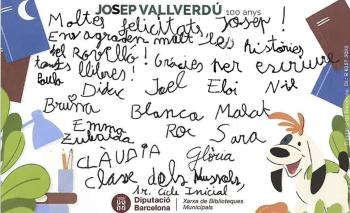 JOSEP VALLVERDÚ 100 anys
Moltes felicitats Josep!
Ens agraden molt les històries
del Rovelló! Gràcies per escriure
tants llibres!
Paula Dídac Joel Eloi Nil
Bruna Blanca Malat
Emma Zubaida Roc Sara
CLÀUDIA Glòria
Classe dels Mussols
1r. Cicle Inicial
Diputació Barcelona
Xarxa de Biblioteques Municipals